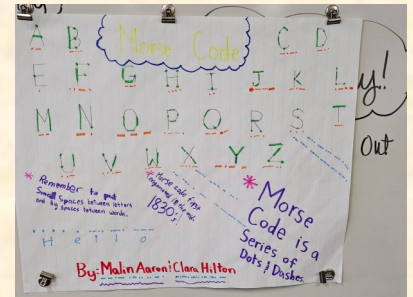 Morse Code
A B C D
E F G H I J K L
M N O P Q R S T
U V W X Y Z
* Remember to put
Small spaces between letters
and big spaces between words.
* Morse code first
in the mid
1830's!
* Morse
Code is a
Series of
Dots & Dashes.
Hello
By: Malin Aaron & Clara Hilton
y!
Out